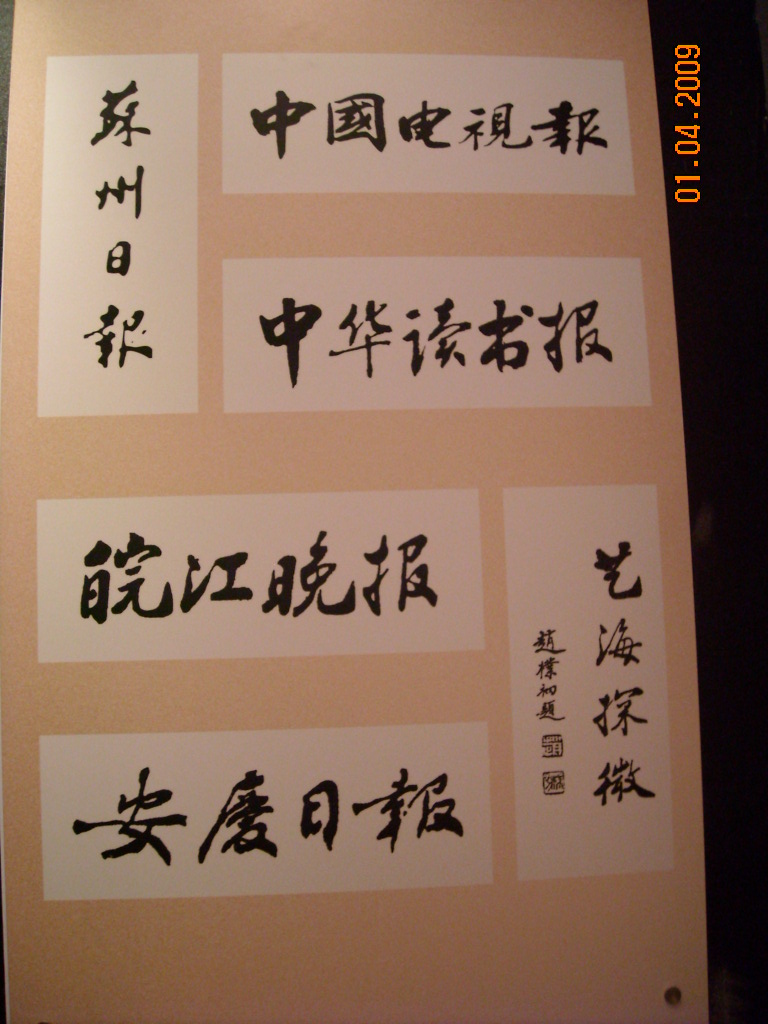 蘇州日報
中國电視報
中华读书报
皖江晚报
艺海探微
趙樸初题
安慶日報
01.04.2009